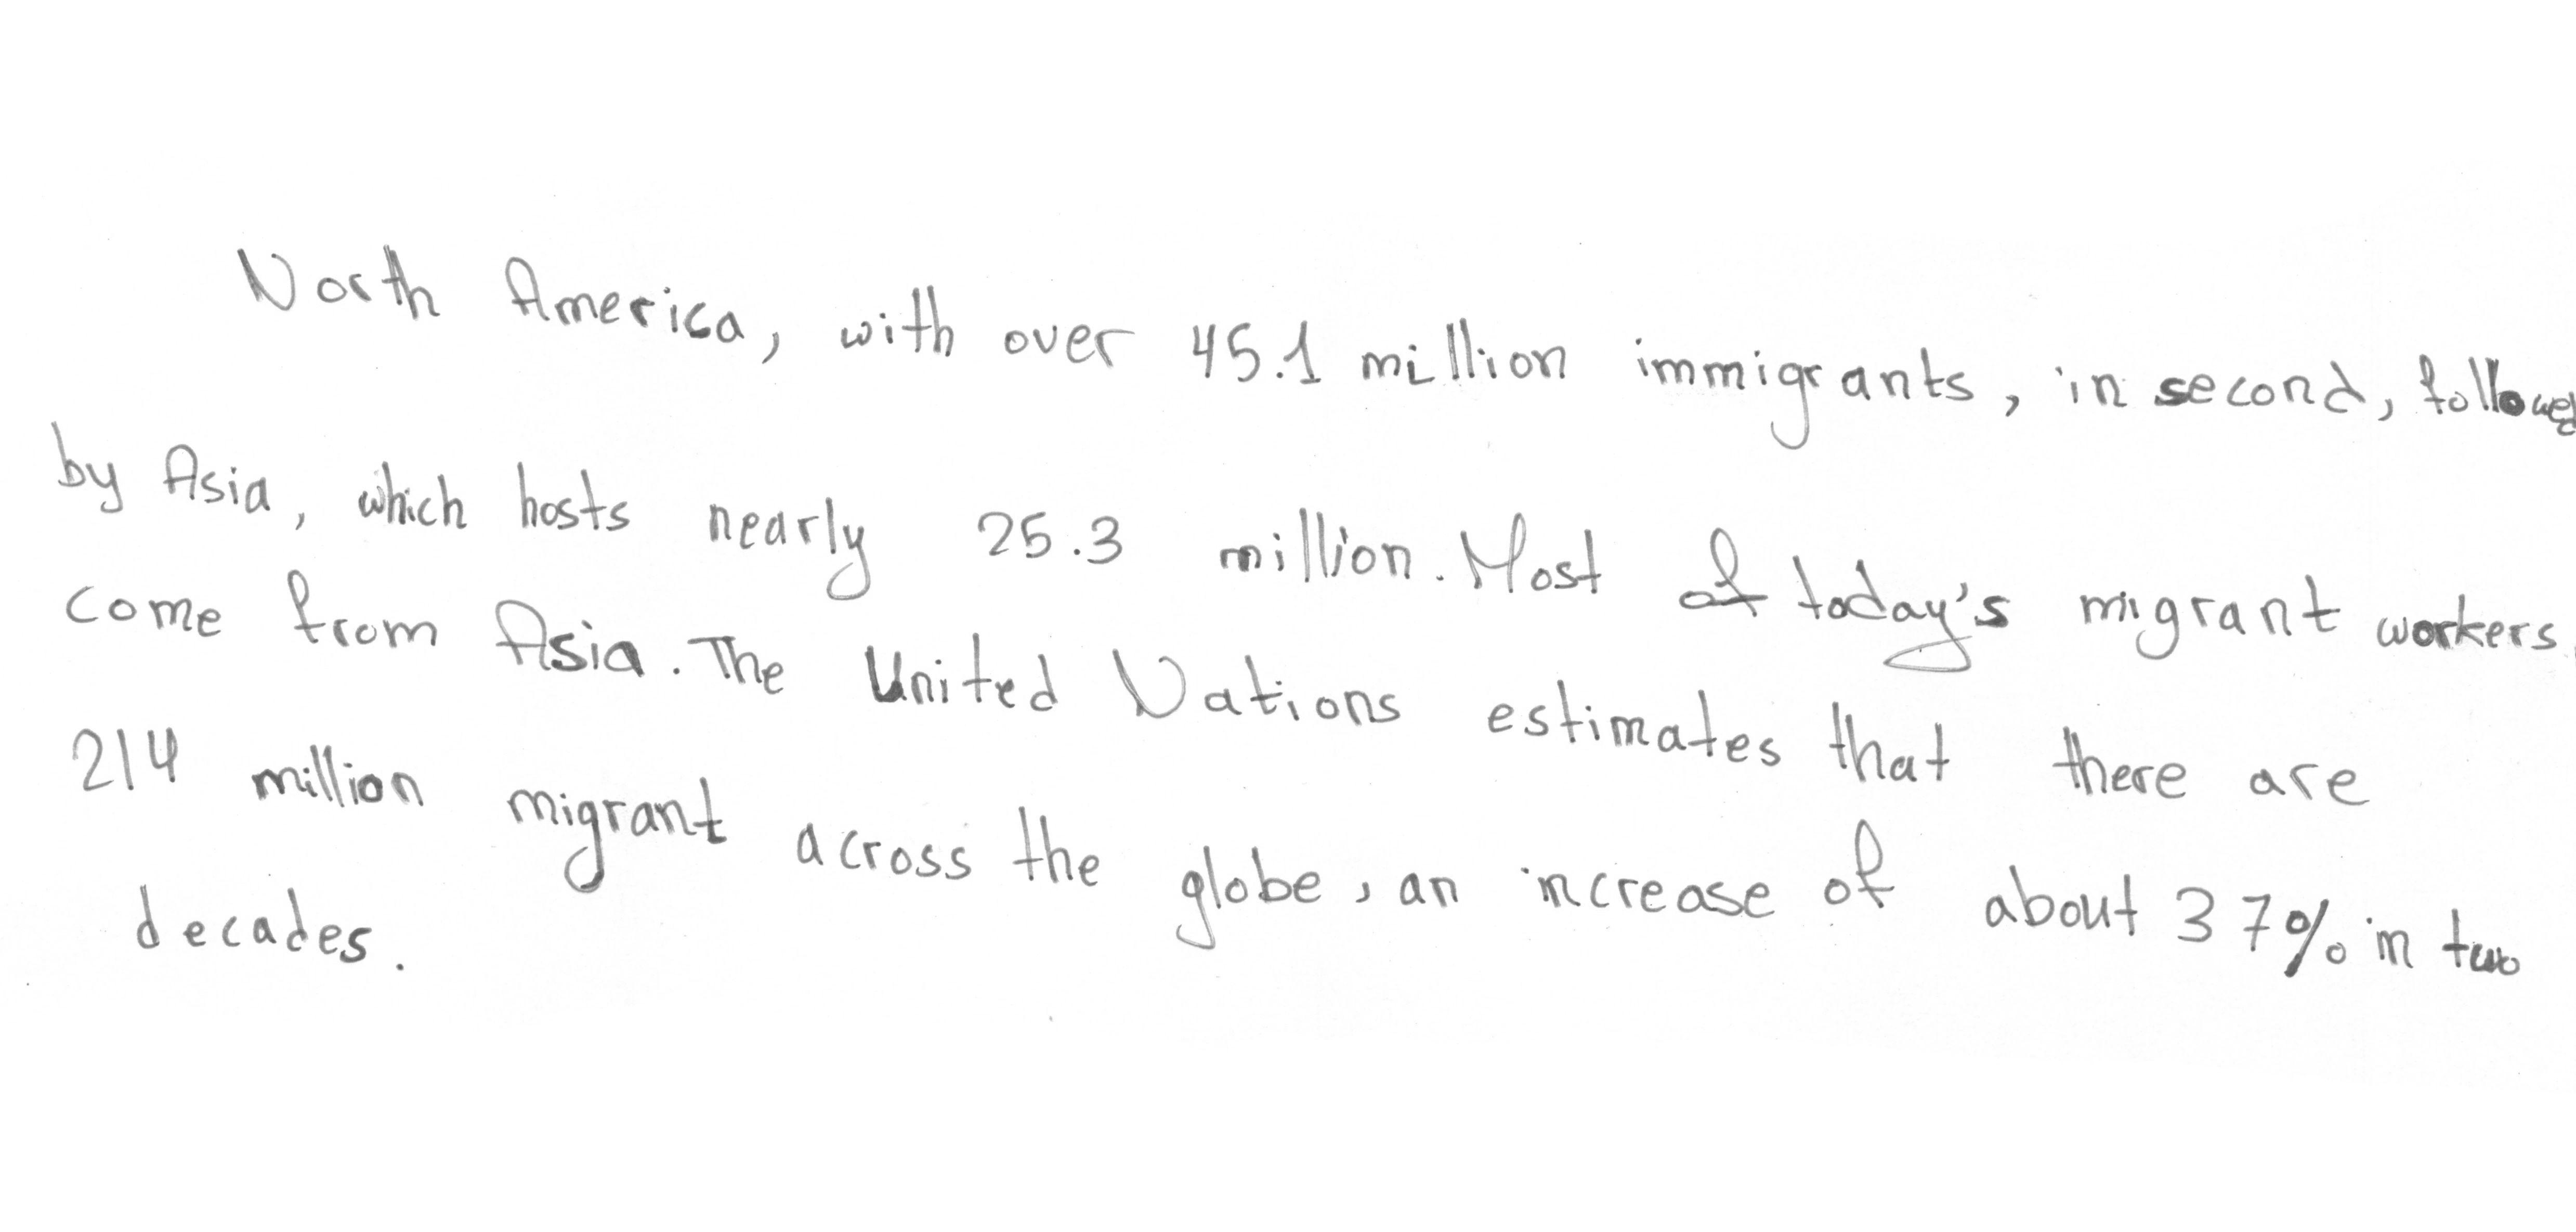 North America, with over 45.1 million immigrants, in second, followed
by Asia, which hosts nearly 25.3 million. Most of today's migrant workers
come from Asia. The United Nations estimates that there are
214 million migrant across the globe, an increase of about 37% in two
decades.